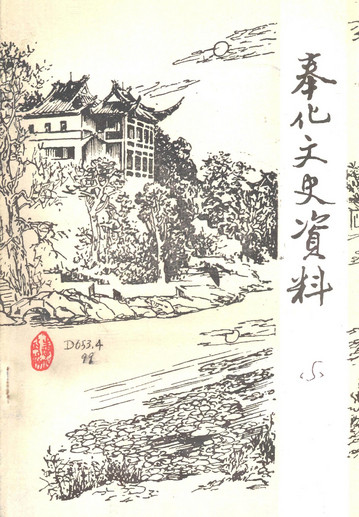 奉化文史资料
<5>
D653.4
99